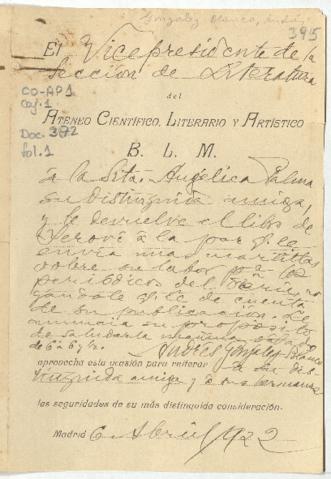 Gonzalez Blanco, Andrés
395
El Vicepresidente de la
Sección de Literatura
del
CO-AP1
Caj. 1
ATENEO CIENTÍFICO, LITERARIO Y ARTÍSTICO
Doc. 392
fol. 1
B. L. M.
a la Srta. Angélica Palma
su distinguida amiga,
y le devuelve el libro de
Yerovi á la par q. le
envía unas cuartillas
sobre su labor pª los
periódicos del Perú, ro-
gándole q. le dé cuenta
de su publicación. Le
anuncia su propósito
de saludarla mañana
de 6 a 6 y ½.
Andrés González Blanco
aprovecha esta ocasión para reiterar a su dis-
tinguida amiga y a sus hermanas
las seguridades de su más distinguida consideración.
Madrid 6 Abril 1922